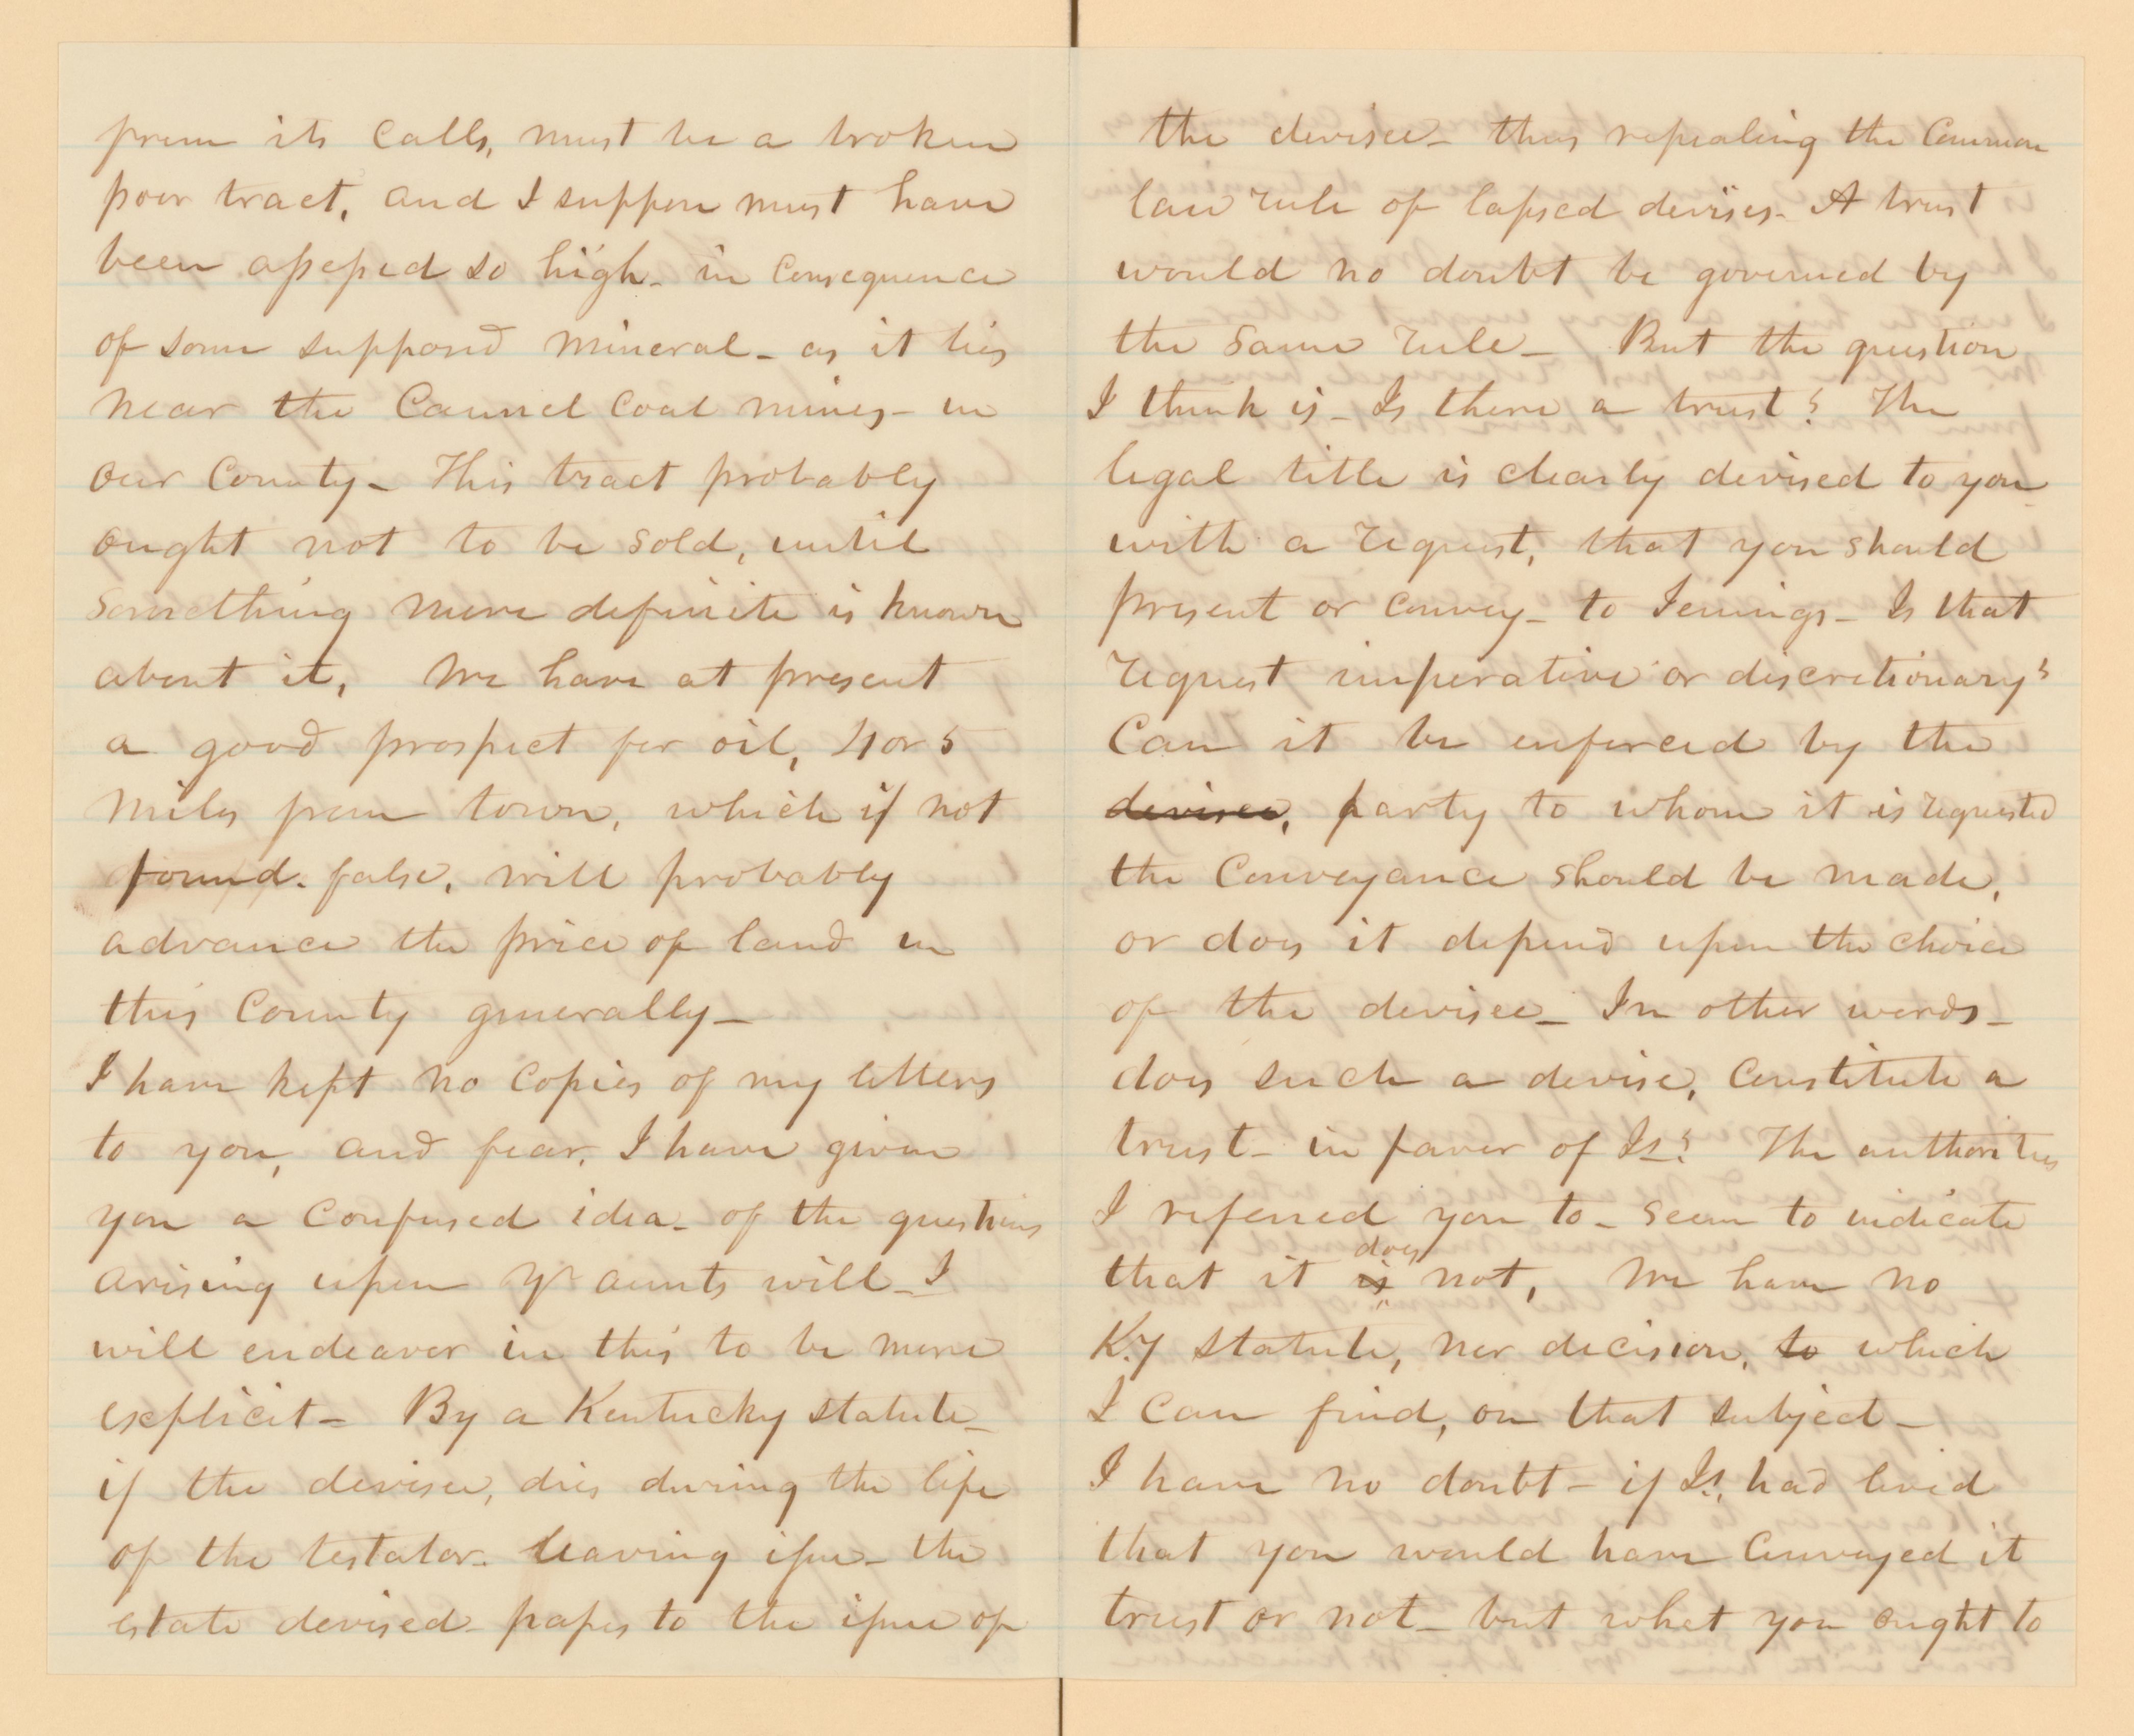 from its calls, must be a broken
poor tract, and I suppose must have
been assessed so high - in consequence
of some supposed mineral - as it lies
near the Cannel coal mines - in
our County - This tract probably
ought not to be sold, until
something more definite is known
about it, We have at present
a good prospect for oil, 4 or 5
miles from town, which if not
found false, will probably
advance the price of land in
this County generally -
I have kept no copies of my letters
to you, and fear, I have given
you a confused idea - of the questions
arising upon Yr aunts will - I
will endeavor in this to be more
explicit - By a Kentucky statute -
if the devisee, dies during the life
of the testator - leaving issue - the
estate devised - passes to the issue of
the devisee - thus repealing the Common
law rule of lapsed devises - A trust
would no doubt be governed by
the same rule - But the question
I think is - Is there a trust? The
legal title is clearly devised to you
with a request, that you should
present or convey - to Jennings - Is that
request imperative or discretionary?
Can it be enforced by the
devisee, party to whom it is requested
the conveyance should be made,
or does it depend upon the choice
of the devisee - In other words -
does such a devise, constitute a
trust - in favor of Is? The authorities
I referred you to - seem to indicate
that it is does not, We have no
K.y statute, nor decision, to which
I can find, on that subject -
I have no doubt - if Is. had lived
that you would have conveyed it
trust or not - but what you ought to